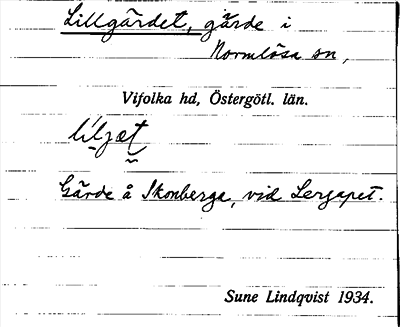 Lillgärdet, gärde i
Normlösa sn,
Vifolka hd, Östergötl. län.
Gärde å Skonberga, vid Lergapet.
Sune Lindqvist 1934.